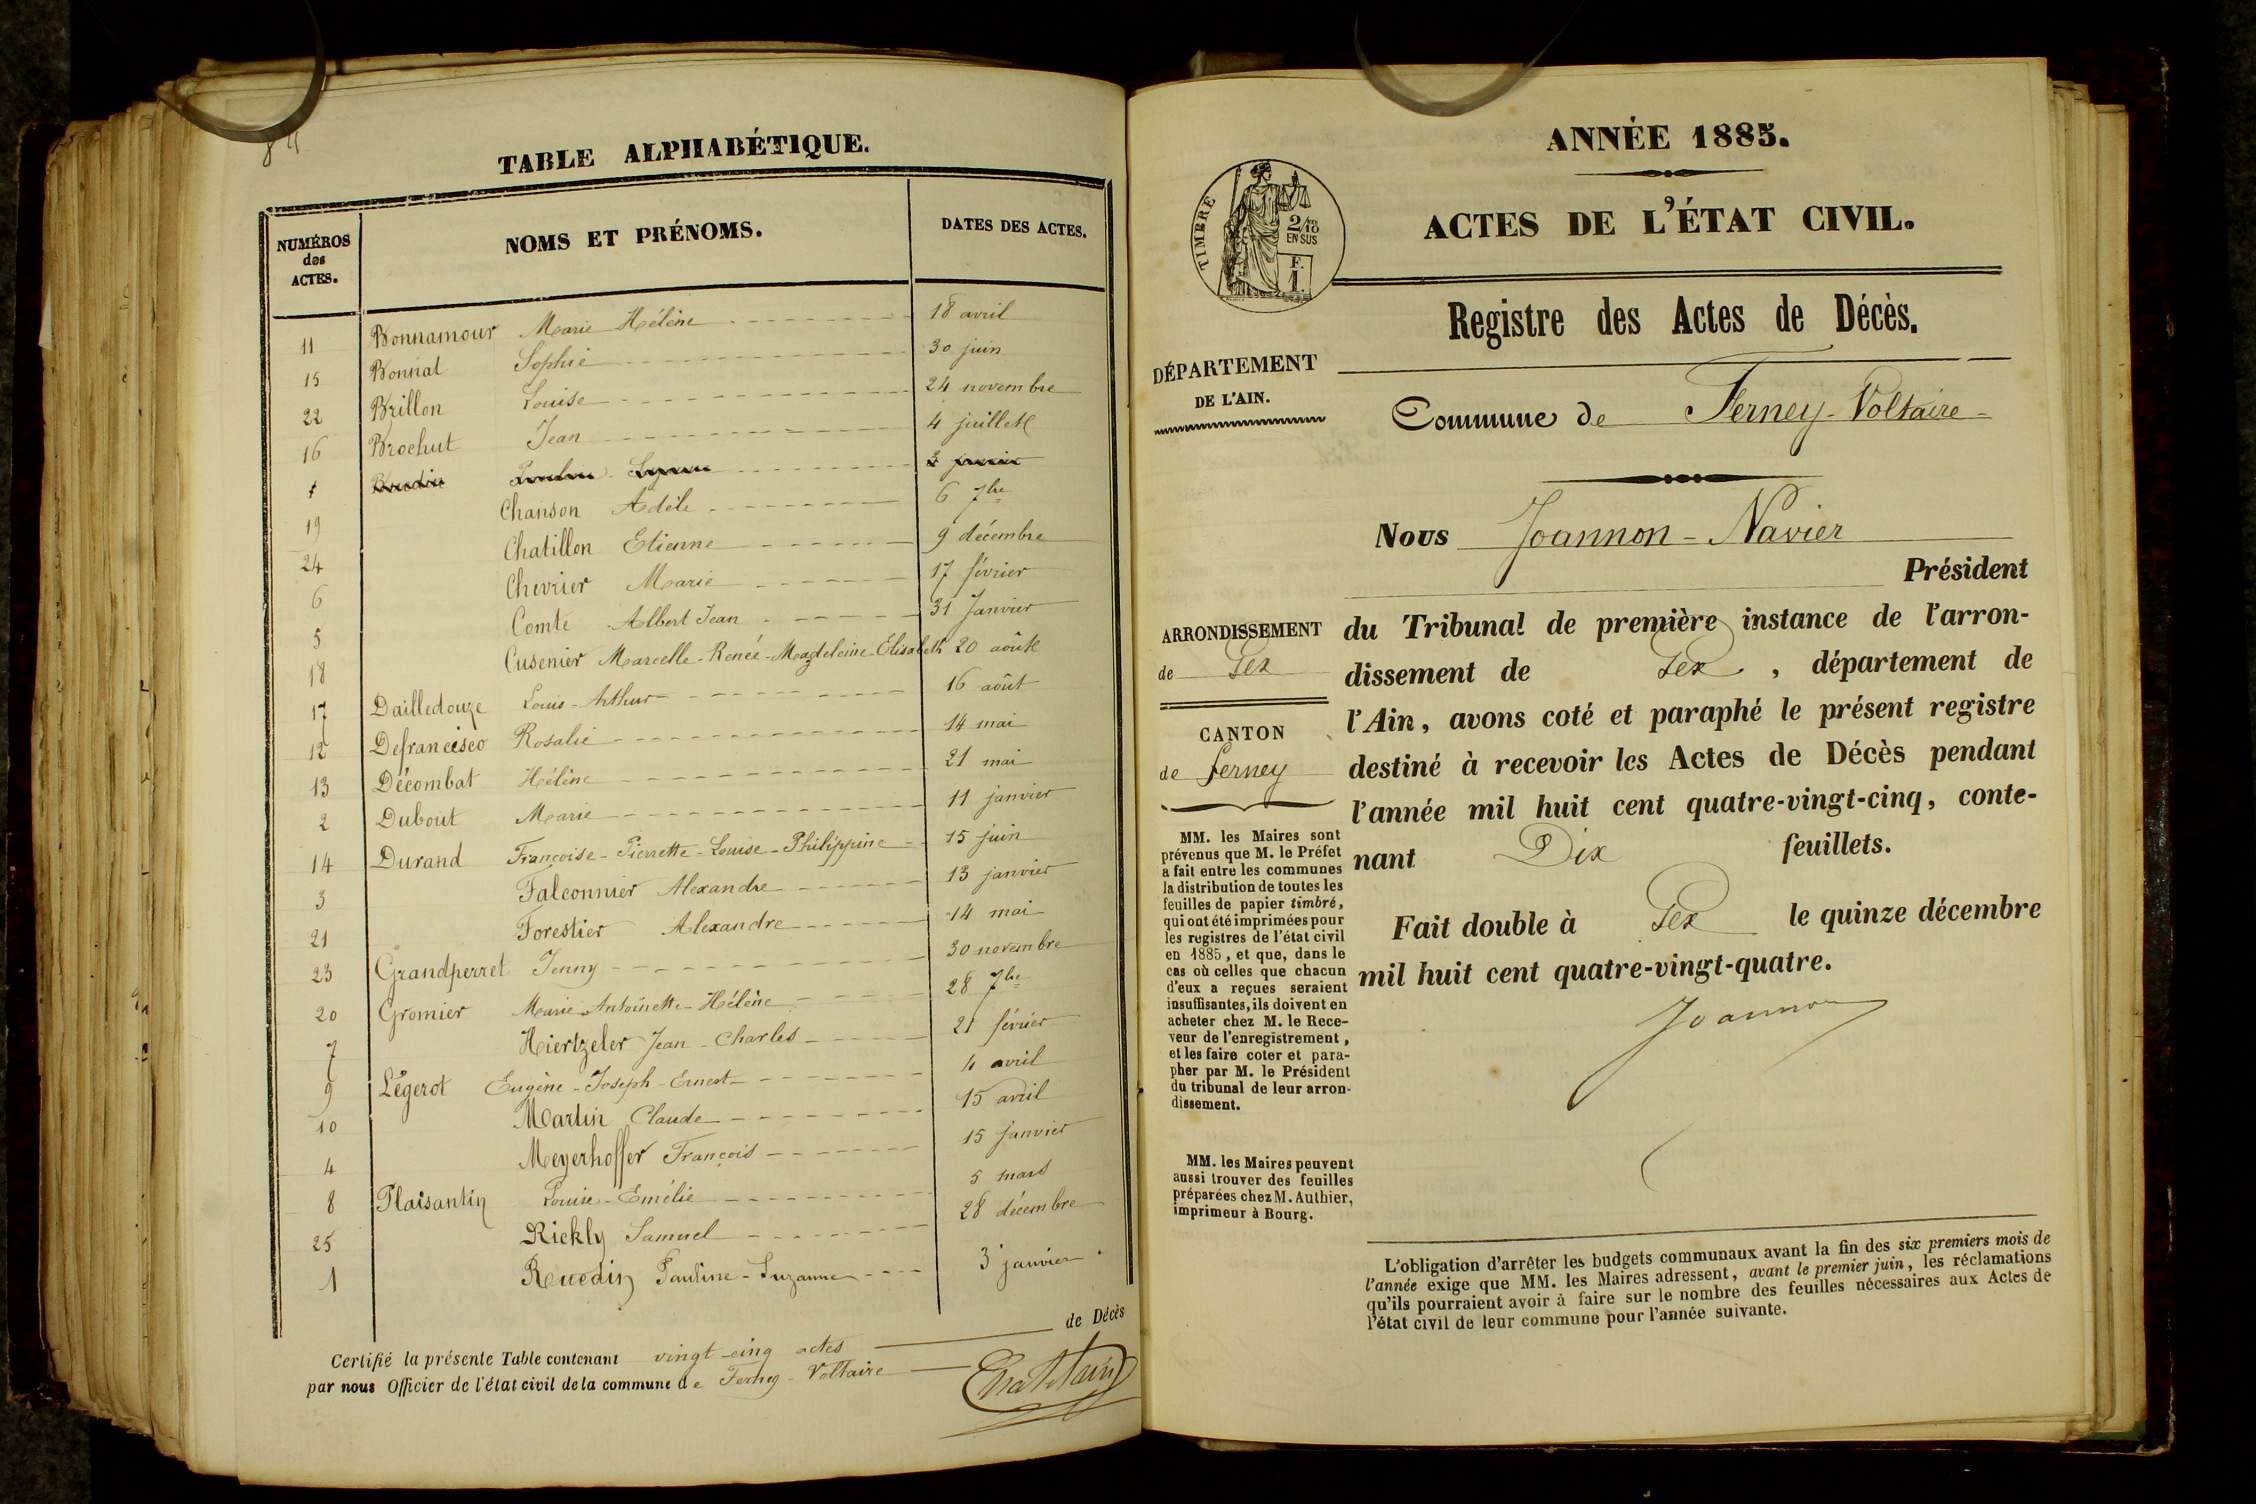 84
TABLE ALPHABÉTIQUE.
NUMÉROS des ACTES. NOMS ET PRÉNOMS. DATES DES ACTES.
11 Bonnamour Marie Hélène 18 avril
15 Bonnat Sophie 30 juin
22 Brillon Louise 24 novembre
16 Brochut Jean 4 juillet
1 3 janvier
19 Chanson Adèle 6 7bre
24 Chatillon Etienne 9 décembre
6 Chevrier Marie 17 février
5 Comte Albert Jean 31 Janvier
18 Cusenier Marcelle-Renée-Magdeleine-Elisabeth 20 août
17 Dailledouze Louis-Arthur 16 août
12 Defrancisco Rosalie 14 mai
13 Décombat Hélène 21 mai
2 Dubout Marie 11 janvier
14 Durand Françoise-Pierrette-Louise-Philippine 15 juin
3 Falconnier Alexandre 13 janvier
21 Forestier Alexandre 14 mai
23 Grandperret Jenny 30 novembre
20 Gromier Marie-Antoinette-Hélène 28 7bre
7 Hiertzeler Jean-Charles 21 février
9 Légerot Eugène-Joseph-Ernest 4 avril
10 Martin Claude 15 avril
4 Meyerhoffer François 15 janvier
8 Plaisantin Louise-Emélie 5 mars
25 Rickly Samuel 28 décembre
1 Ruedin Pauline-Suzanne 3 janvier
Certifié la présente Table contenant vingt-cinq actes de Décès
par nous Officier de l'état civil de la commune de Ferney-Voltaire
ANNÉE 1885.
ACTES DE L'ÉTAT CIVIL.
TIMBRE
2/10 EN SUS
F. 1.
Registre des Actes de Décès.
DÉPARTEMENT
DE L'AIN.
Commune de Ferney-Voltaire
Nous Joannon-Navier
Président
du Tribunal de première instance de l'arron-
dissement de Gex, département de
l'Ain, avons coté et paraphé le présent registre
destiné à recevoir les Actes de Décès pendant
l'année mil huit cent quatre-vingt-cinq, conte-
nant Dix feuillets.
Fait double à Gex le quinze décembre
mil huit cent quatre-vingt-quatre.
Joannon
ARRONDISSEMENT
de Gex
CANTON
de Ferney
MM. les Maires sont
prévenus que M. le Préfet
a fait entre les communes
la distribution de toutes les
feuilles de papier timbré,
qui ont été imprimées pour
les registres de l'état civil
en 1885, et que, dans le
cas où celles que chacun
d'eux a reçues seraient
insuffisantes, ils doivent en
acheter chez M. le Rece-
veur de l'enregistrement,
et les faire coter et para-
pher par M. le Président
du tribunal de leur arron-
dissement.
MM. les Maires peuvent
aussi trouver des feuilles
préparées chez M. Authier,
imprimeur à Bourg.
L'obligation d'arrêter les budgets communaux avant la fin des six premiers mois de
l'année exige que MM. les Maires adressent, avant le premier juin, les réclamations
qu'ils pourraient avoir à faire sur le nombre des feuilles nécessaires aux Actes de
l'état civil de leur commune pour l'année suivante.